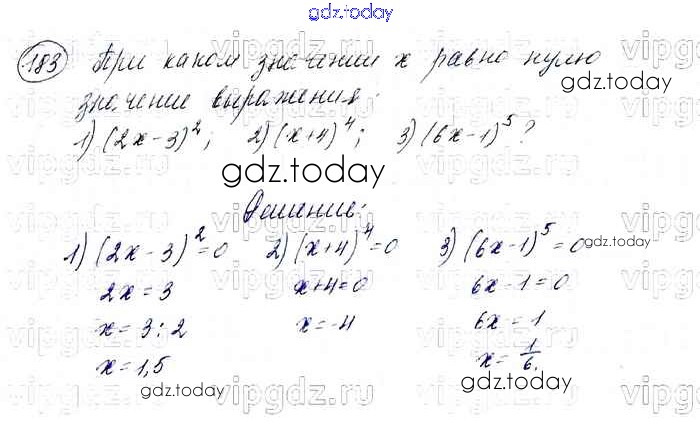 gdz.today
183 При каком значении x равно нулю
значение выражения:
1) (2x-3)²; 2) (x+4)⁴; 3) (6x-1)⁵?
Решение:
1) (2x-3)²=0 2) (x+4)⁴=0 3) (6x-1)⁵=0
2x=3 x+4=0 6x-1=0
x=3:2 x=-4 6x=1
x=1,5 x=1/6.
gdz.today
gdz.today
gdz.today
gdz.today
gdz.today
vipgdz.ru